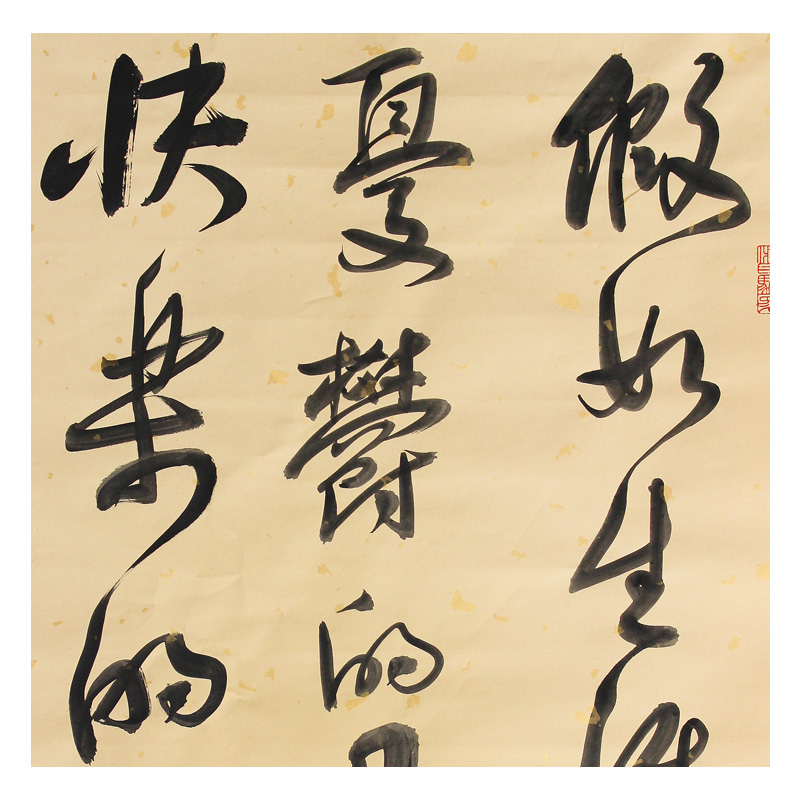 假如生
憂鬱的
快樂的